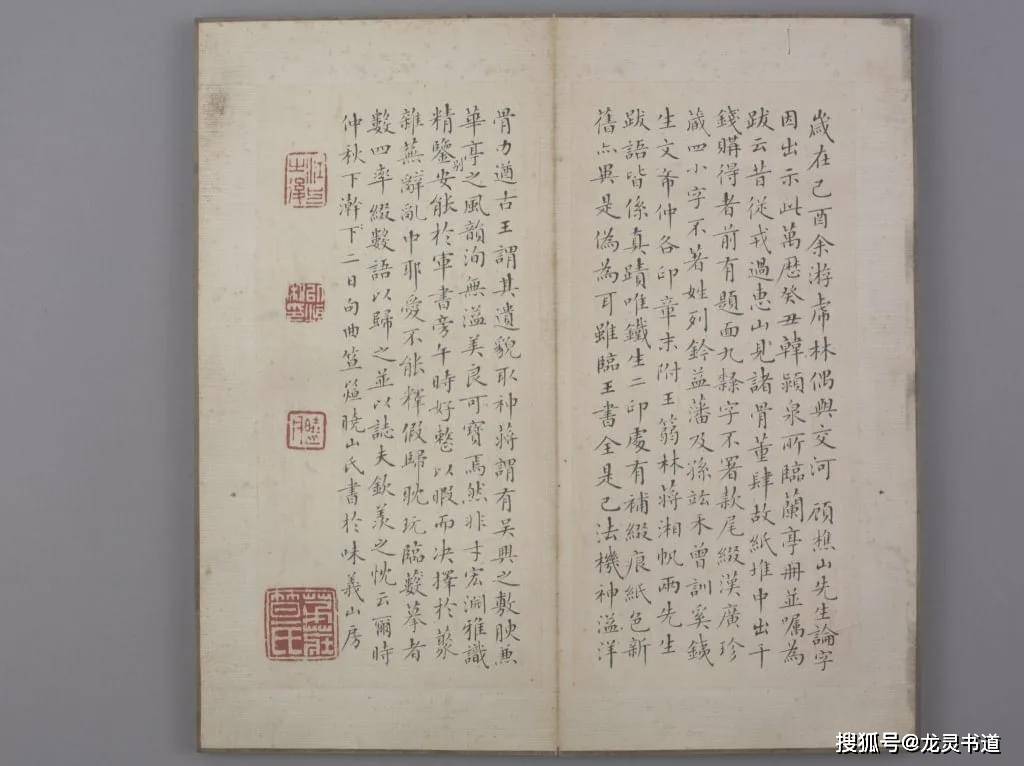 歲在己酉余游虎林偶與交河 顧樵山先生論字
因出示此萬歷癸丑韓潁泉所臨蘭亭冊並囑為
跋云昔從戎過惠山見諸骨董肆故紙堆中出千
錢購得者前有題面九隸字不署款尾綴漢廣珍
藏四小字不著姓列鈐益藩及孫竑禾曾訓奚銕
生文齋仲各印章末附王蒻林蔣湘帆兩先生
跋語皆係真蹟唯鐵生二印處有補綴痕紙色新
舊亦異是偽為耳雖臨王書全是己法機神溢洋
骨力遒古王謂其遺貌取神蔣謂有吳興之敷腴兼
華亭之風韻洵無溢美良可寶焉然非才宏淵雅識
精鑒別安能於軍書旁午時好整以暇而決擇於叢
雜蕪辭亂中耶愛不能釋假歸耽玩臨數摹者
數四率綴數語以歸之並以誌夫欽羨之忱云爾時
仲秋下澣下二日句曲笪 曉山氏書於味義山房
搜狐号@龙灵书道